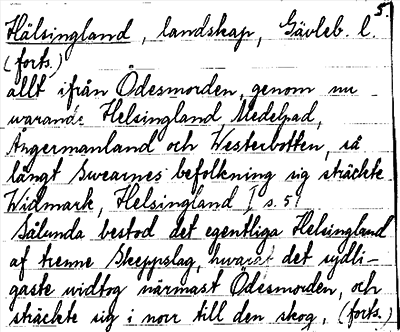 5.
Hälsingland, landskap, Gävleb. l.
(forts.)
allt ifrån Ödesmorden, genom nu
warande Helsingland Medelpad,
Ångermanland och Westerbotten, så
långt Swearnes befolkning sig sträckte.
Widmark, Helsingland I s. 5
Sålunda bestod det egentliga Helsingland
af trenne Skeppslag, hwaraf det sydli-
gaste widtog närmast Ödesmorden, och
sträckte sig i norr till den skog, (forts.)